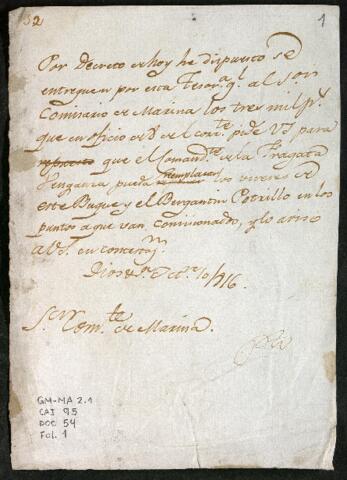 52 1
Por Decreto de hoy he dispuesto se
entreguen por esta Tesor.ª gl. al Sor
Comisario de Marina los tres mil p.s
que en oficio de 8 del corr.te pide VS para
que el Comand.te de la Fragata
Venganza pueda remplazar los viveres de
este Buque y el Bergantin Potrillo en los
puntos a que van comisionados, y lo aviso
a VS. en contest.n
Dios &.ª 10/816.
S.or Com.te de Marina.
GM-MA 2.1
CAJ 95
DOC 54
Fol. 1